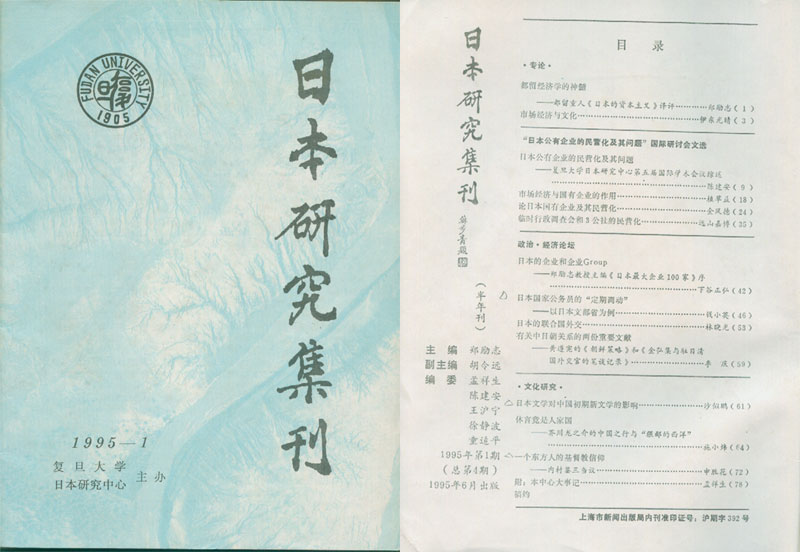 FUDAN UNIVERSITY
1905
日本研究集刊
1995—1
复旦大学
日本研究中心
主办
日本研究集刊
苏步青题
(半年刊)
主编 郑励志
副主编 胡令远
编委 孟祥生
陈建安
王沪宁
徐静波
童适平
1995年第1期
(总第4期)
1995年6月出版
目录
·专论·
都留经济学的神髓
——都留重人《日本的资本主义》译评…………郑励志(1)
市场经济与文化…………伊东光晴(3)
“日本公有企业的民营化及其问题”国际研讨会文选
日本公有企业的民营化及其问题
——复旦大学日本研究中心第五届国际学术会议综述
…………陈建安(9)
市场经济与国有企业的作用…………植草益(18)
论日本国有企业及其民营化…………金凤德(24)
临时行政调查会和3公社的民营化…………远山嘉博(35)
政治·经济论坛
日本的企业和企业Group
——郑励志教授主编《日本最大企业100家》序
…………下谷正弘(42)
日本国家公务员的“定期调动”
——以日本文部省为例…………钱小英(46)
日本的联合国外交…………林晓光(53)
有关中日朝关系的两份重要文献
——黄遵宪的《朝鲜策略》和《金弘集与驻日清
国外交官的笔谈记录》…………李(59)
·文化研究·
日本文学对中国初期新文学的影响…………沙似鹏(61)
休言竟是人家国
——芥川龙之介的中国之行与“猥鄙的西洋”
…………施小炜(64)
一个东方人的基督教信仰
——内村鉴三刍议…………申胜花(72)
附：本中心大事记…………孟祥生(78)
稿约
上海市新闻出版局内刊准印证号：沪期字392号